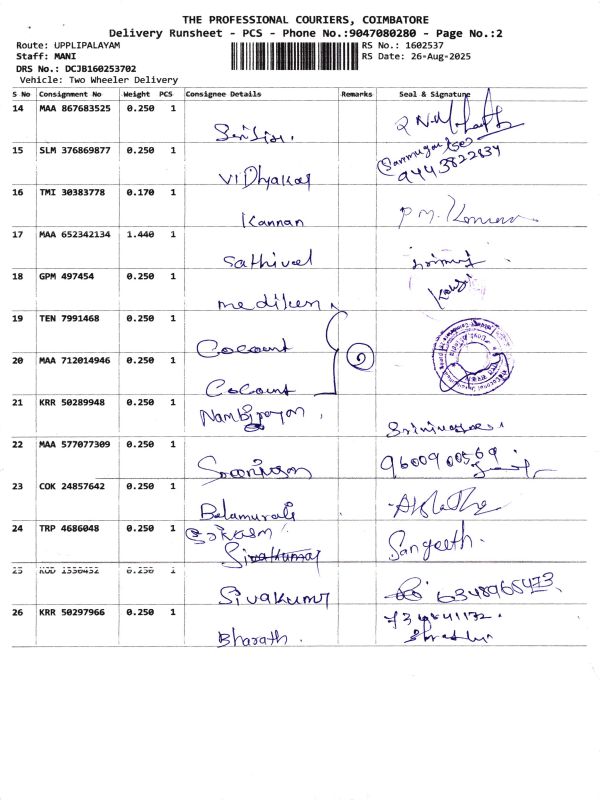 THE PROFESSIONAL COURIERS, COIMBATORE
Delivery Runsheet - PCS - Phone No.:9047080280 - Page No.:2
Route: UPPLIPALAYAM RS No.: 1602537
Staff: MANI RS Date: 26-Aug-2025
DRS No.: DCJB160253702
Vehicle: Two Wheeler Delivery
S No Consignment No Weight PCS Consignee Details Remarks Seal & Signature
14 MAA 867683525 0.250 1
15 SLM 376869877 0.250 1
9443822834
VIDhyakar
16 TMI 30383778 0.170 1
Kannan
17 MAA 652342134 1.440 1
Sathivel
18 GPM 497454 0.250 1
mediken
19 TEN 7991468 0.250 1
Coconut
20 MAA 712014946 0.250 1
Coconut
21 KRR 50289948 0.250 1
22 MAA 577077309 0.250 1
9600900569
23 COK 24857642 0.250 1
Balamurali
24 TRP 4686048 0.250 1
Sivakumar Sangeeth.
25 KGD 1550452 0.250 1
Sivakumr 6348965473
26 KRR 50297966 0.250 1
Bharath.